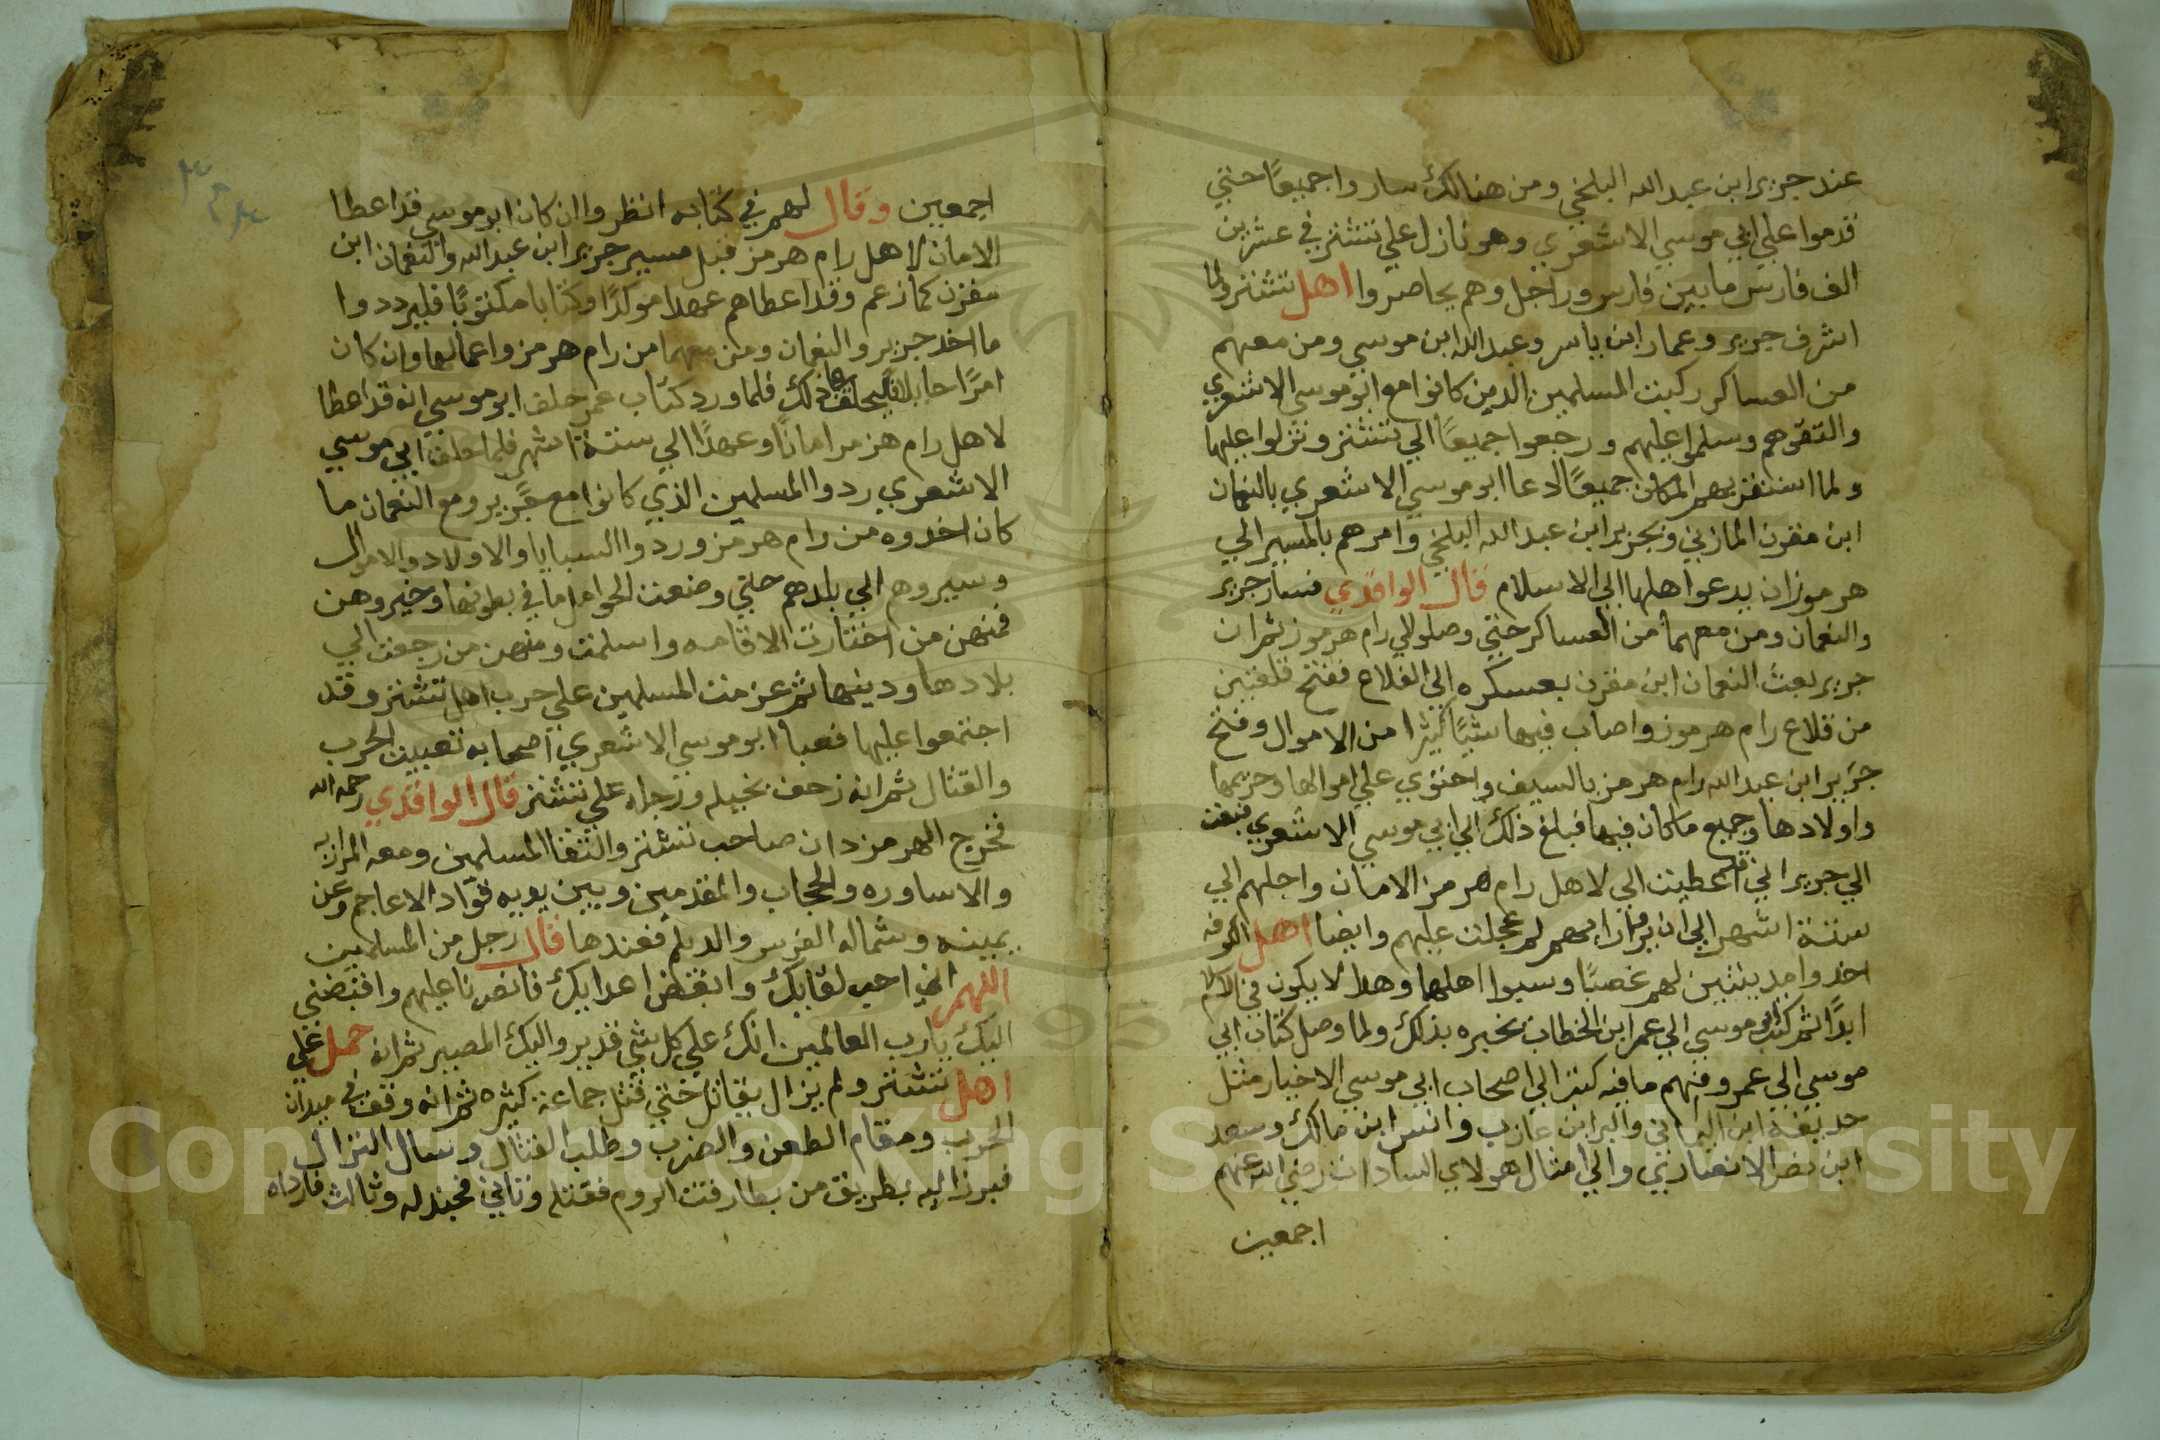 عند جرير ابن عبد الله البلخي ومن هنالك ساروا جميعًا حتي
قدموا علي ابي موسي الاشعري وهو نازل علي تشتر في عشرين
الف فارس ما بين فارس وراجل وهم يحاصروا اهل تشتر ولما
اشرف جرير وعمار ابن ياسر وعبد الله ابن موسي ومن معهم
من العساكر ركبت المسلمين الدين كانوا مع ابو موسي الاشعري
والتقوهم وسلموا عليهم ورجعوا جميعًا الي تشتر ونزلوا عليها
ولما استقر بهم المكان جميعًا ادعا ابو موسي الاشعري بالنعمان
ابن مقرن المازني وبجرير ابن عبد الله البلخي وامرهم بالمسير الي
هرموزان يدعوا اهلها الي الاسلام قال الواقدي فسار جرير
والنعمان ومن معهما من العساكر حتي وصلوا الي رام هرموز ثم ان
جرير بعث النعمان ابن مقرن بعسكره الي القلاع ففتح قلعتين
من قلاع رام هرموز واصاب فيها شيًا كثيرًا من الاموال وفتح
جرير ابن عبد الله رام هرمز بالسيف واحتوي علي اموالها وحريمها
واولادها وجميع ما كان فيها فبلغ ذلك الي ابي موسي الاشعري فبعث
الي جرير اني قد اعطيت الي لاهل رام هرمز الامان واجلهم الي
ستة اشهر الي ان نرا رايهم لم عجلت عليهم وايضا اهل الكوفه
اخدوا مدينتين لهم غصبًا وسبوا اهلها وهدا لا يكون في الاسلام
ابدًا ثم كتب ابو موسي الي عمر ابن الخطاب يخبره بذلك ولما وصل كتاب ابي
موسي الي عمر وفهم ما فيه كتب الي اصحاب ابي موسي الاخيار مثل
حديفة ابن اليماني والبرا ابن عازب وانس ابن مالك وسعد
ابن نضر الانصاري والي امثال هولاي السادات رضي الله عنهم
اجمعين
اجمعين وقال لهم في كتابه انظروا ان كان ابو موسي قد اعطا
الامان لاهل رام هرمز قبل مسير جرير ابن عبد الله والنعمان ابن
مقرن كما زعم وقد اعطاهم عهدا موكدًا وكتابا مكتوبًا فليرددوا
ما اخد جرير والنعمان ومن معهما من رام هرمز واعمالها وان كان
امرًا حايلا فليحلف علي ذلك فلما ورد كتاب عمر حلف ابو موسي انه قد اعطا
لاهل رام هرمز امانًا وعهدًا الي ستة اشهر فلما حلف ابي موسي
الاشعري ردوا المسلمين الذي كانوا مع جرير ومع النعمان ما
كان اخدوه من رام هرمز وردوا السبايا والاولاد والاموال
وسيروهم الي بلدهم حتي وضعت الحوامل ما في بطونها وخيروهن
فمنهن من اختارت الاقامه واسلمت ومنهن من رجعت الي
بلادها ودينها ثم عزمت المسلمين علي حرب اهل تشتر وقد
اجتمعوا عليها فعبا ابو موسي الاشعري اصحابه تعبيت الحرب
والقتال ثم انه زحف بخيله ورجاله علي تشتر قال الواقدي رحمه الله
فخرج الهرمزدان صاحب تشتر والتقا المسلمين ومعه المرازبه
والاساوره والحجاب والمقدمين وبين يديه قوّاد الاعاجم وعن
يمينه وشماله الفرس والديلم فعندها قال رجل من المسلمين
اللهم اني احب لقايك وابغض اعدايك فانصرنا عليهم واقبضني
اليك يارب العالمين انك علي كل شي قدير واليك المصير ثم انه حمل علي
اهل تشتر ولم يزال يقاتل حتي قتل جماعة كثيره ثم انه وقف في ميدان
الحرب ومقام الطعن والضرب وطلب القتال وسال النزال
فبرز اليه بطريق من بطارقت الروم فقتله وثاني فجندله وثالث فارداه
Copyright © King Saud University